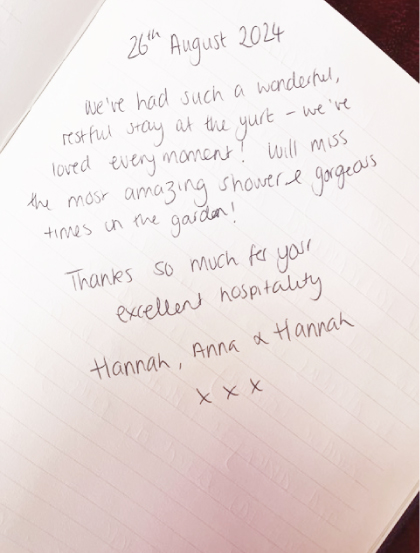 26th August 2024
We've had such a wonderful,
restful stay at the yurt – we've
loved every moment! Will miss
the most amazing shower & gorgeous
times in the garden!
Thanks so much for your
excellent hospitality
Hannah, Anna & Hannah
x x x